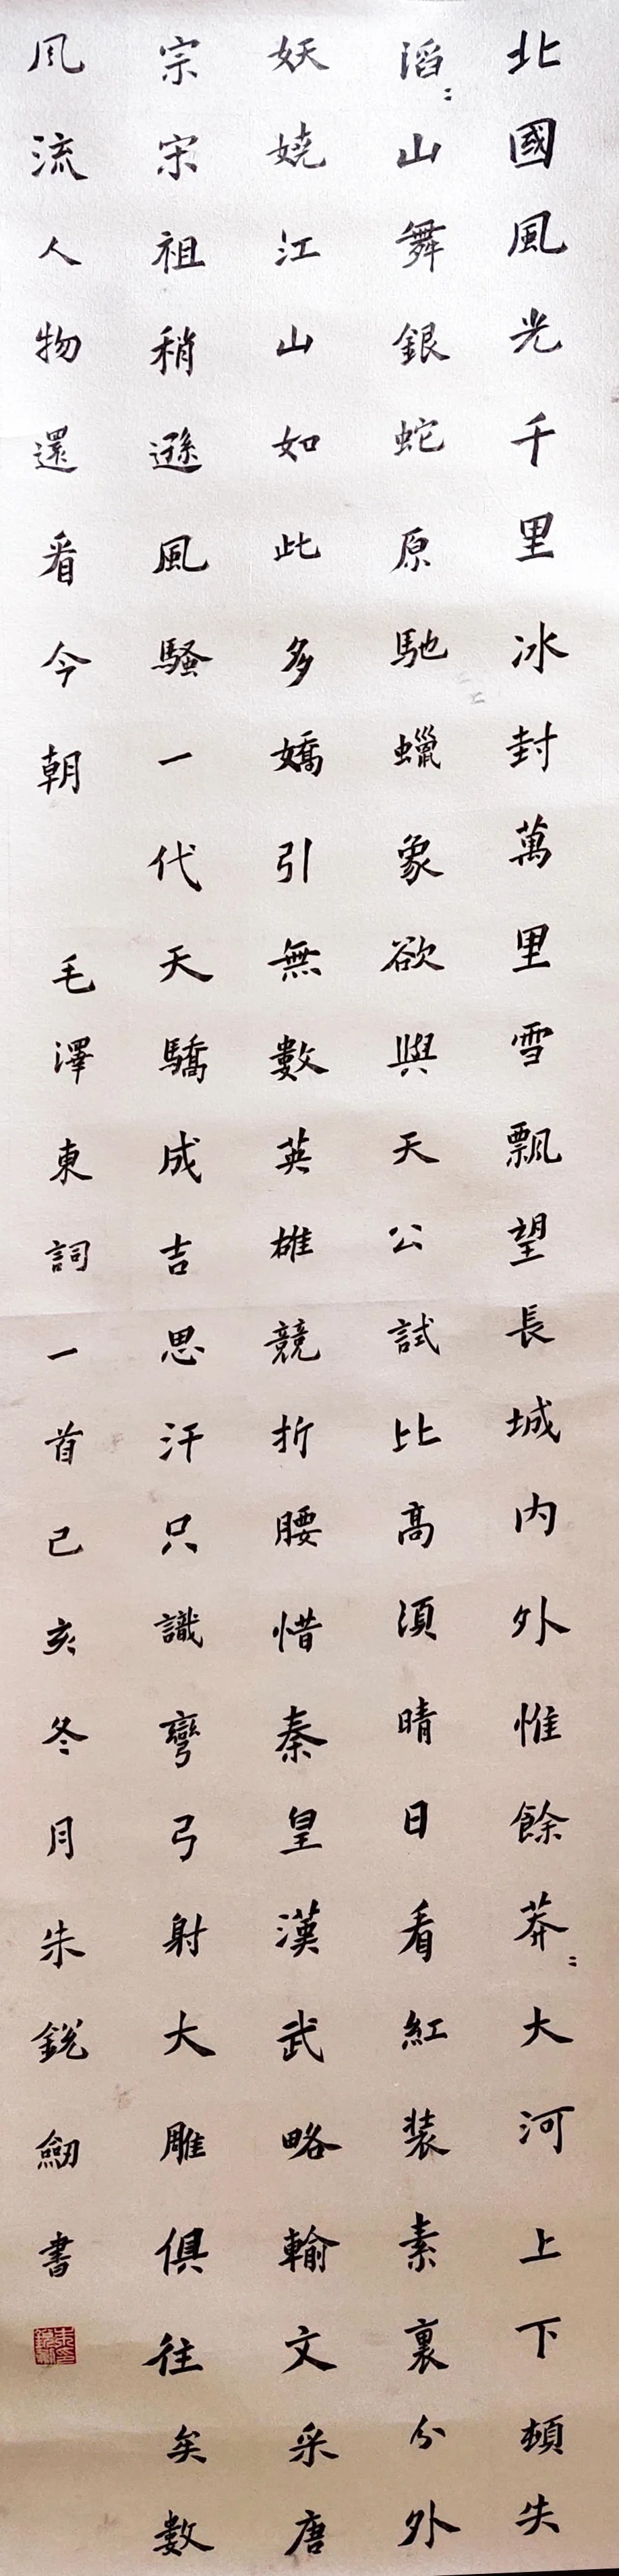 北國風光千里冰封萬里雪飄望長城內外惟餘莽〻大河上下頓失
滔〻山舞銀蛇原馳蠟象欲與天公試比高須晴日看紅裝素裹分外
妖嬈江山如此多嬌引無數英雄競折腰惜秦皇漢武略輸文采唐
宗宋祖稍遜風騷一代天驕成吉思汗只識彎弓射大雕俱往矣數
風流人物還看今朝 毛澤東詞一首己亥冬月朱銳劒書